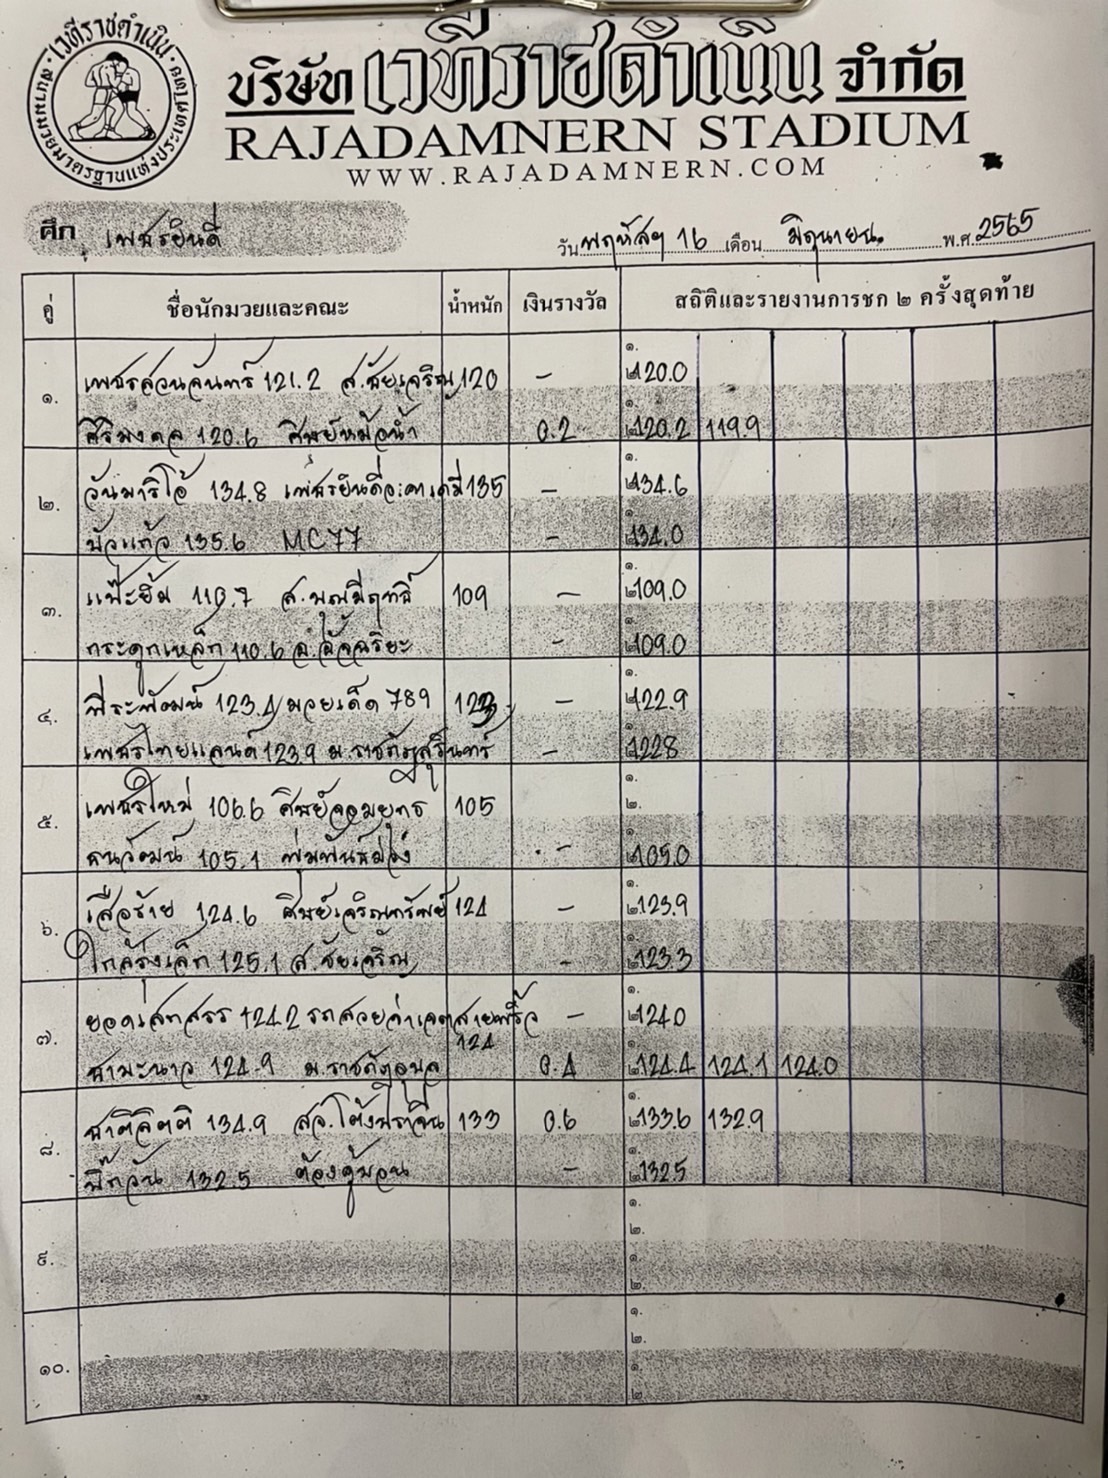 เวทีราชดำเนิน
สนามมวยมาตรฐานแห่งประเทศไทย
บริษัท เวทีราชดำเนิน จำกัด
RAJADAMNERN STADIUM
WWW.RAJADAMNERN.COM
ศึก เพชรยินดี
วัน พฤหัสฯ 16 เดือน มิถุนายน พ.ศ. 2565
คู่ ชื่อนักมวยและคณะ น้ำหนัก เงินรางวัล สถิติและรายงานการชก ๒ ครั้งสุดท้าย
๑. เพชรสวนจันทร์ 121.2 ส.ชัยเจริญ 120 – 120.0
ศิริมงคล 120.6 ศิษย์หม้อน้ำ 0.2 120.2 119.9
๒. วันมาริโอ้ 134.8 เพชรยินดีอะคาเดมี่ 135 – 134.6
บัวแก้ว 135.6 MC77 – 134.0
๓. แป๊ะยิ้ม 110.7 ส.บุญมีฤทธิ์ 109 – 109.0
กระดูกเหล็ก 110.6 อ.อัจฉริยะ – 109.0
๔. พีระพัฒน์ 123.4 มวยเด็ด 789 123 – 122.9
เพชรไทยแลนด์ 123.9 ม.ราชภัฏสุรินทร์ – 122.8
๕. เพชรใหม่ 106.6 ศิษย์จอมยุทธ 105
ธนวัฒน์ 105.1 – 105.0
๖. เสือร้าย 124.6 ศิษย์เจริญทรัพย์ 124 – 123.9
ใกล้รุ่งเล็ก 125.1 ส.ชัยเจริญ – 123.3
๗. ยอดเสกสรร 124.2 รถสวยล่าเจตสายพริ้ว 124 – 124.0
ชามะนาว 124.9 ม.ราชภัฏอุบล 0.4 124.4 124.1 124.0
๘. ชาติกิตติ 134.9 สจ.โต้งปราจีน 133 0.6 133.6 132.9
บิ๊กวัน 132.5 ต้องคู้บอน – 132.5
๙.
๑๐.